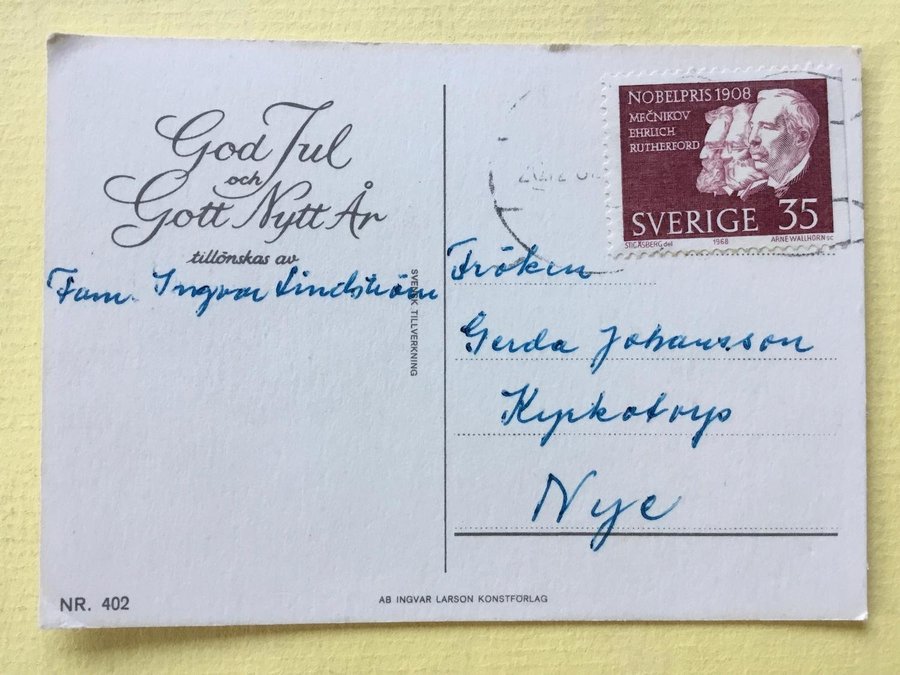 God Jul
och
Gott Nytt År
tillönskas av
Fam. Ingvar Lindström
SVENSK TILLVERKNING
NR. 402
AB INGVAR LARSON KONSTFÖRLAG
NOBELPRIS 1908
MEČNIKOV
EHRLICH
RUTHERFORD
SVERIGE 35
STIG ÅSBERG del 1968 ARNE WALLHORN sc
Fröken
Gerda Johansson
Kyrkotorp
Nye